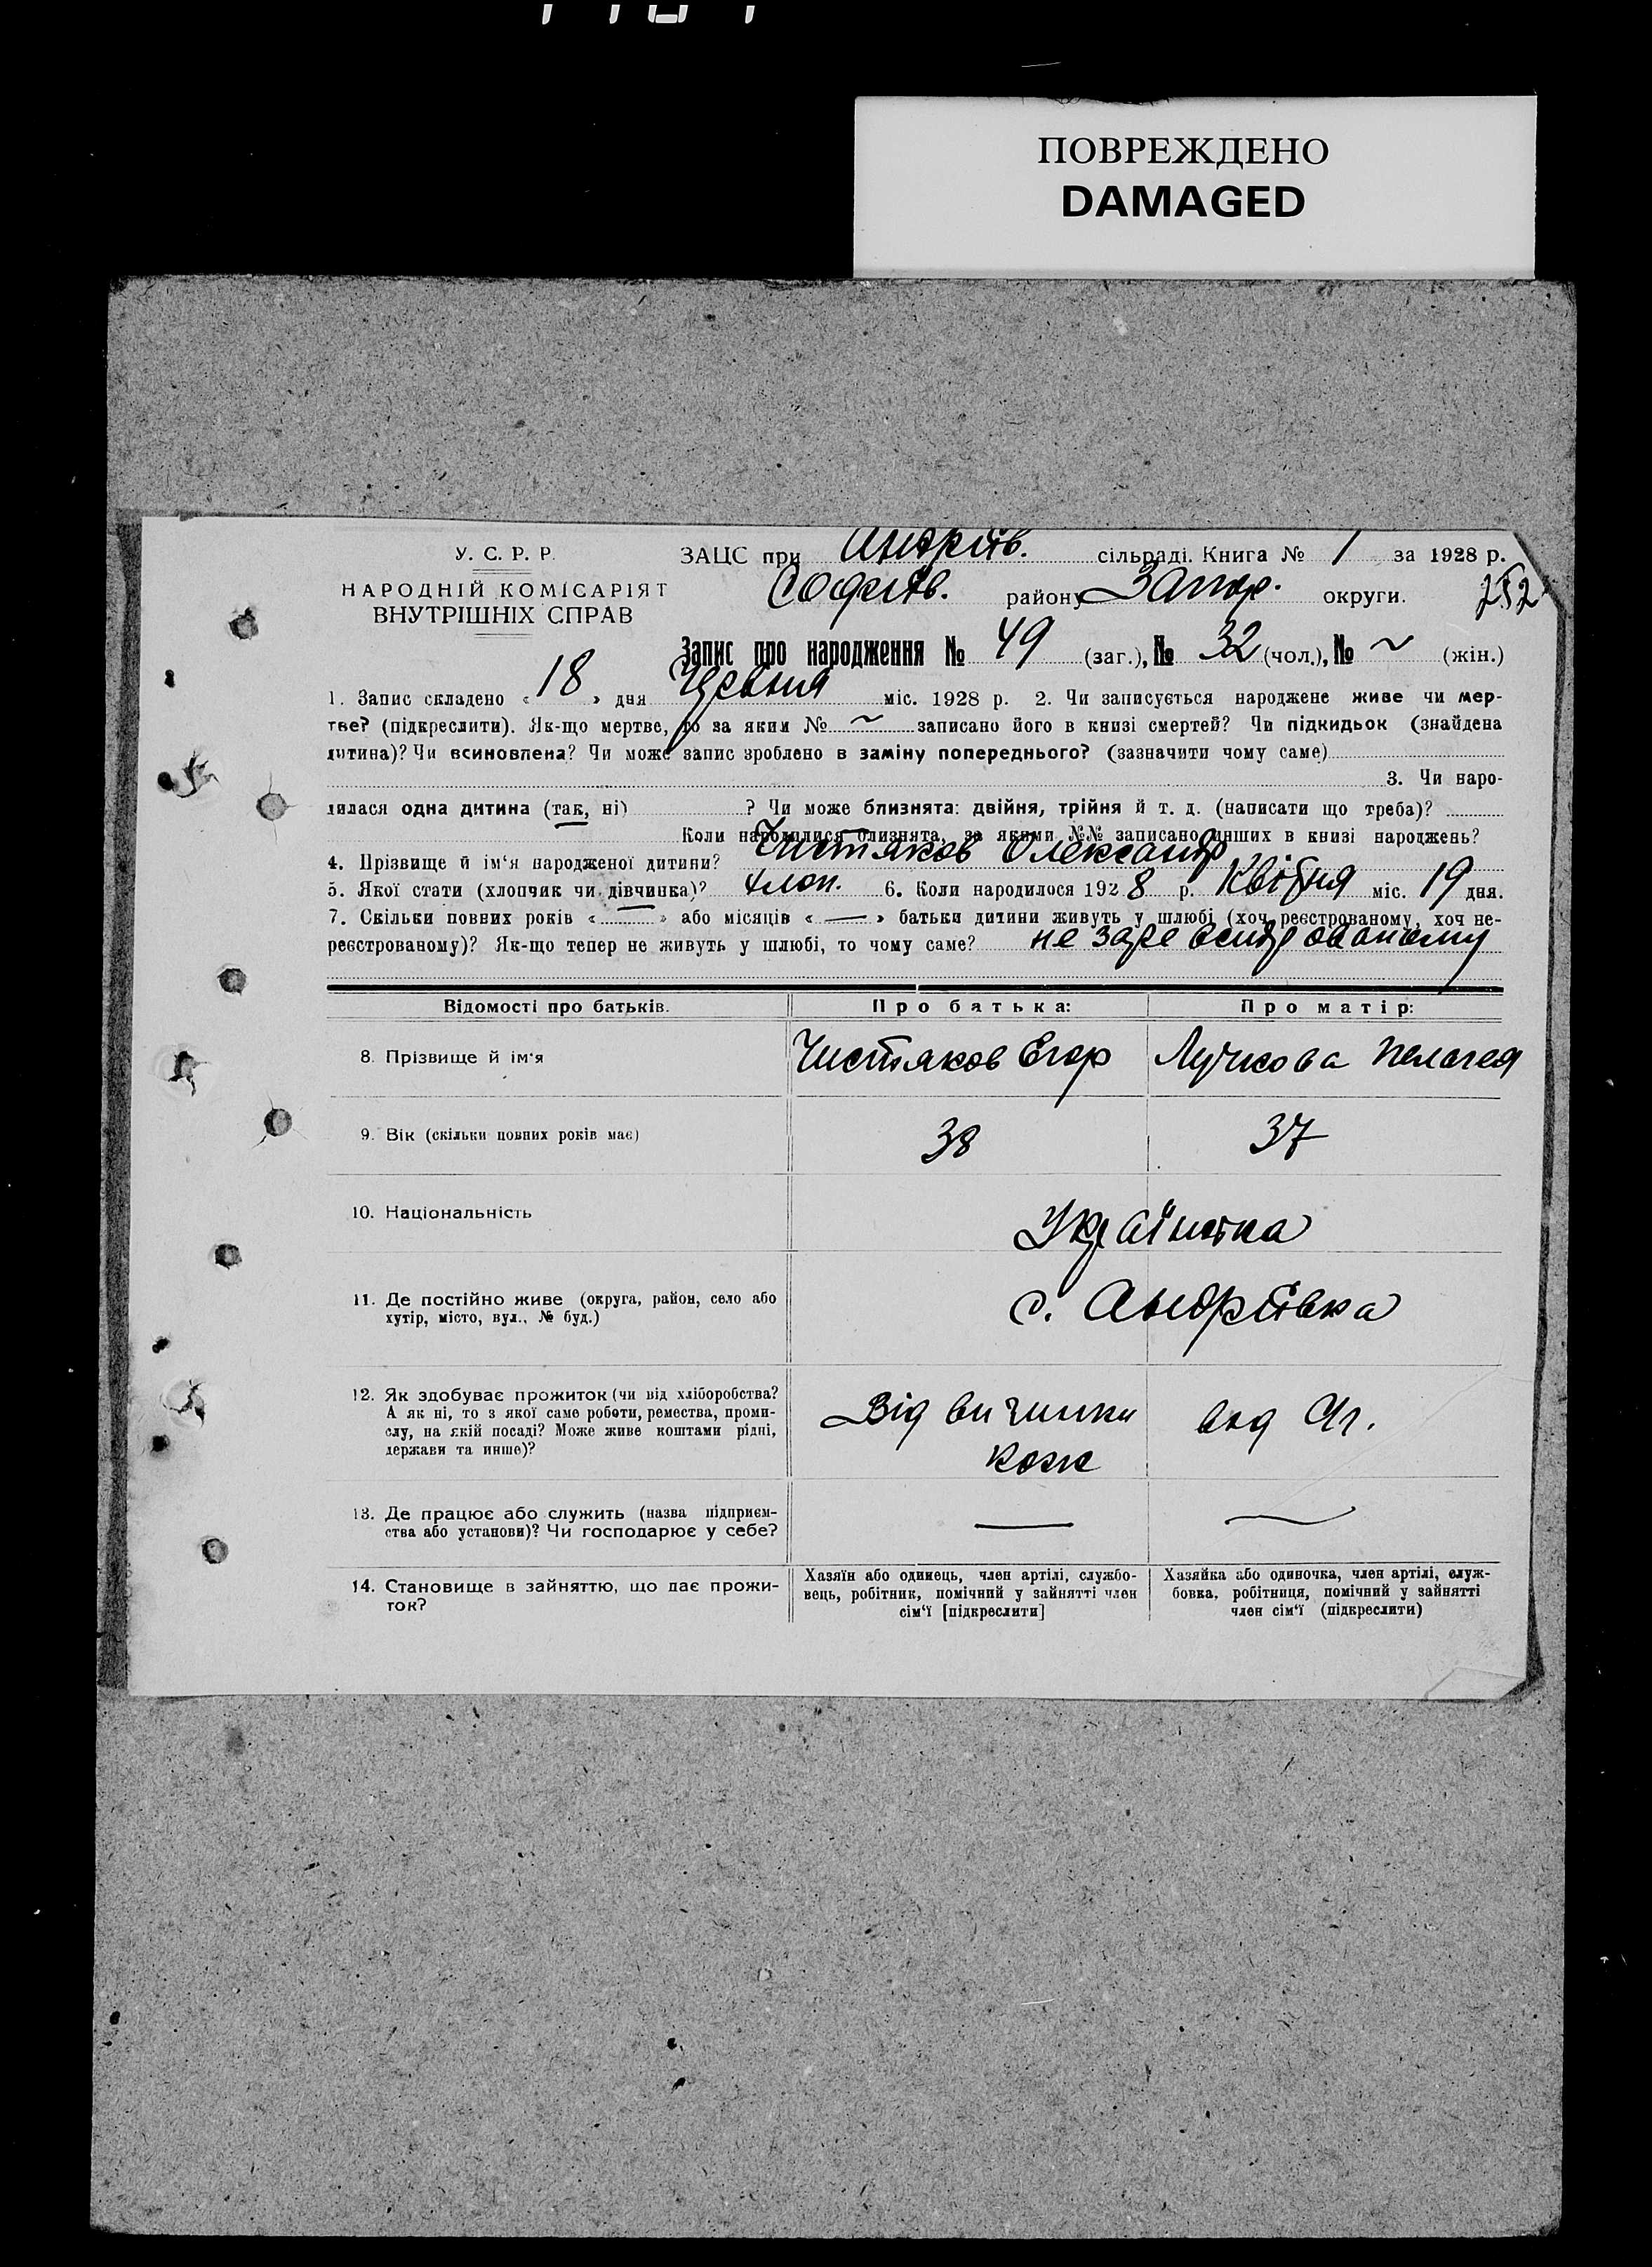 ПОВРЕЖДЕНО
DAMAGED
У. С. Р. Р.
НАРОДНІЙ КОМІСАРІЯТ
ВНУТРІШНІХ СПРАВ
ЗАЦС при Андріїв. сільраді. Книга № 1 за 1928 р.
Софіїв. району Запор. округи.
252
Запис про народження № 49 (заг.), № 32 (чол.), № ~ (жін.)
1. Запис складено « 18 » дня Червня міс. 1928 р. 2. Чи записується народжене живе чи мер-
тве? (підкреслити). Як-що мертве, то за яким № ~ записано його в книзі смертей? Чи підкидьок (знайдена
дитина)? Чи всиновлена? Чи може запис зроблено в заміну попереднього? (зазначити чому саме)
3. Чи наро-
дилася одна дитина (так, ні) ? Чи може близнята: двійня, трійня й т. д. (написати що треба)?
Коли народилися близнята, за якими №№ записано инших в книзі народжень?
4. Прізвище й ім'я народженої дитини? Чистяков Олександр
5. Якої стати (хлопчик чи дівчинка)? хлоп. 6. Коли народилося 1928 р. Квітня міс. 19 дня.
7. Скільки повних років « — » або місяців « — » батьки дитини живуть у шлюбі (хоч реєстрованому, хоч не-
реєстрованому)? Як-що тепер не живуть у шлюбі, то чому саме? не
Відомості про батьків. Про батька: Про матір:
8. Прізвище й ім'я Чистяков Егор Лучкова Пелагея
9. Вік (скільки повних років має) 38 37
10. Національність Українка
11. Де постійно живе (округа, район, село або
хутір, місто, вул., № буд.) с. Андріївка
12. Як здобуває прожиток (чи від хліборобства?
А як ні, то з якої саме роботи, ремества, проми-
слу, на якій посаді? Може живе коштами рідні,
держави та инше)? Від вичинки
кож
13. Де працює або служить (назва підприєм-
ства або установи)? Чи господарює у себе? — —
14. Становище в зайняттю, що дає прожи-
ток?
Хазяїн або одинець, член артілі, службо-
вець, робітник, помічний у зайнятті член
сім'ї [підкреслити]
Хазяйка або одиночка, член артілі, служ-
бовка, робітниця, помічний у зайнятті
член сім'ї (підкреслити)